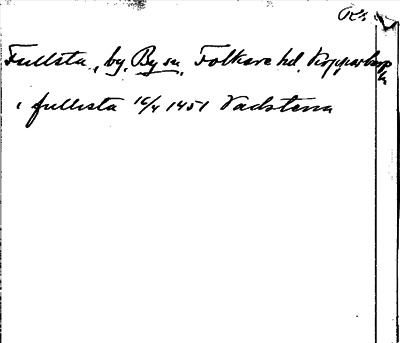 Fullsta, by, By sn, Folkare hd, Kopparbergs
i fullista 16/4 1451 Vadstena